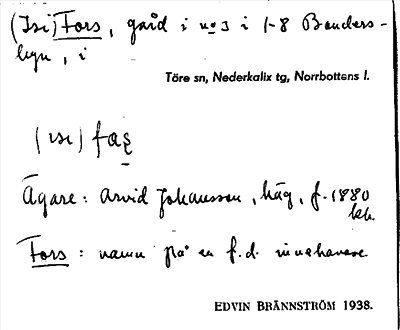 (Isi) Fors, gård i no 3 i 1-8 Banders-
byn, i
Töre sn, Nederkalix tg, Norrbottens l.
(ısı) faʂ
Ägare: Arvid Johansson, häg, f. 1880
Fors: namn på en f.d. innehavare.
EDVIN BRÄNNSTRÖM 1938.